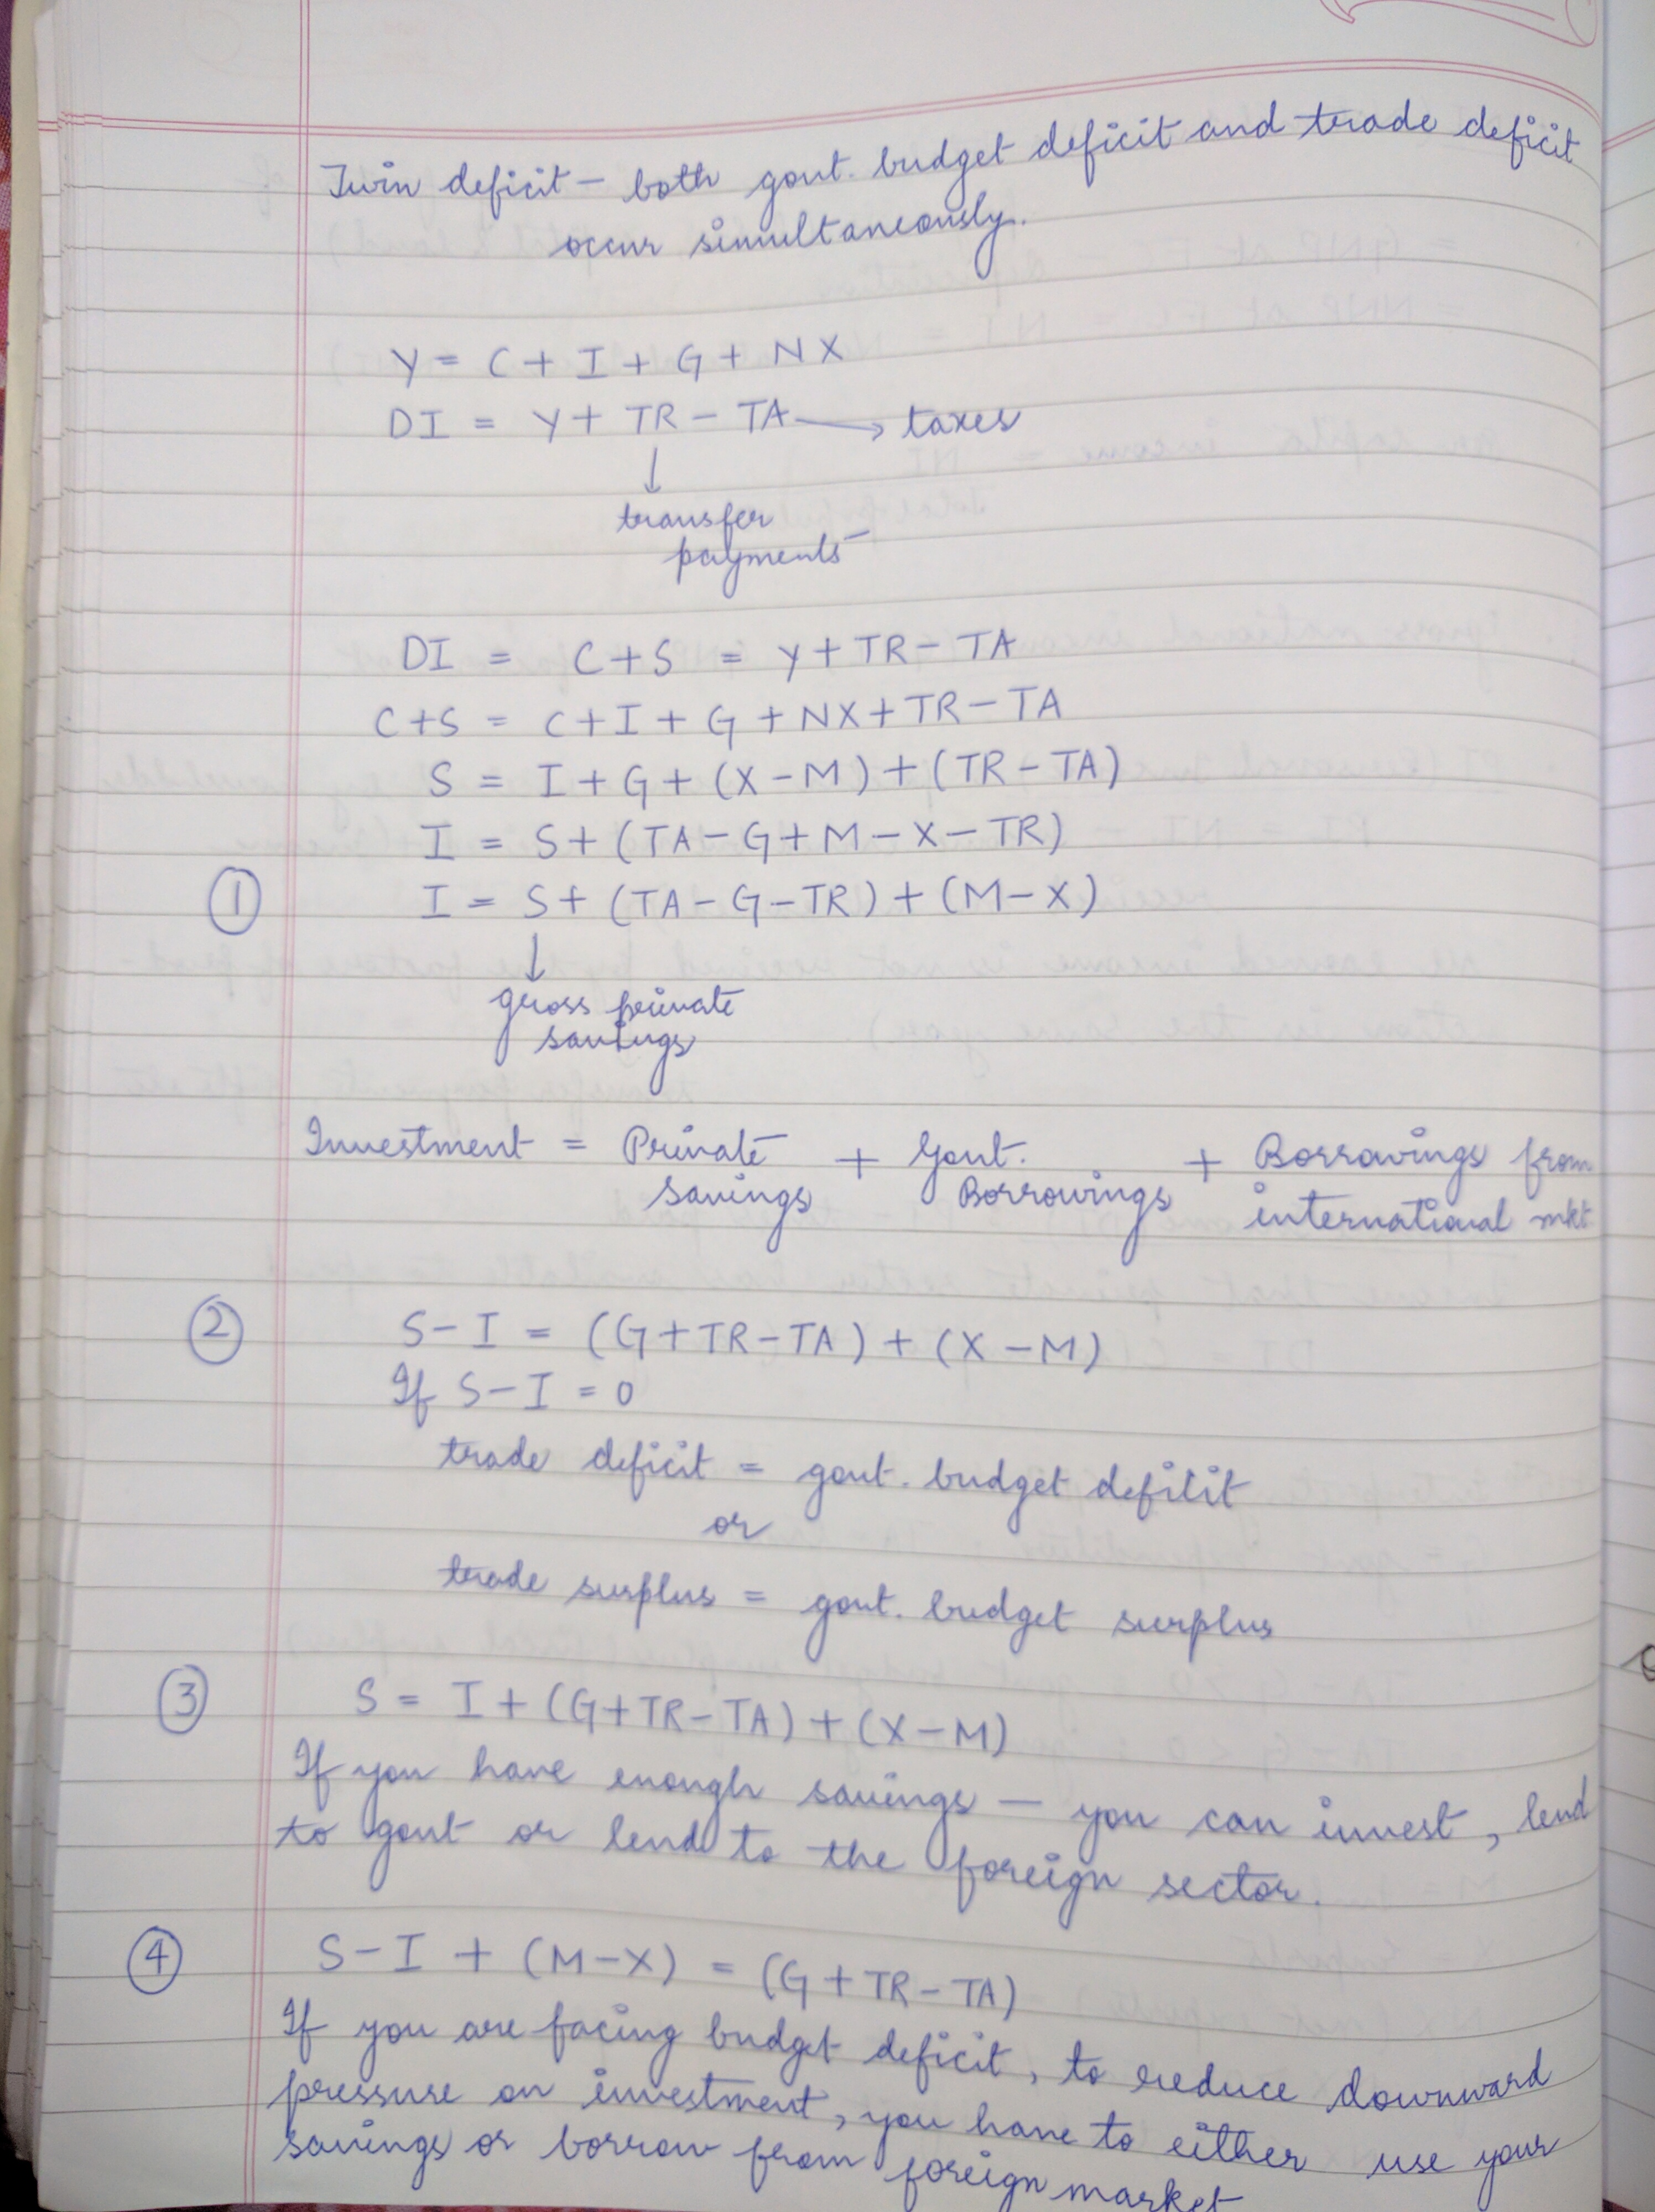 Twin deficit - both govt. budget deficit and trade deficit
occur simultaneously.
Y = C + I + G + NX
DI = Y + TR - TA → taxes
↓
transfer
payments
DI = C + S = Y + TR - TA
C + S = C + I + G + NX + TR - TA
S = I + G + (X - M) + (TR - TA)
I = S + (TA - G + M - X - TR)
① I = S + (TA - G - TR) + (M - X)
↓
gross private
savings
Investment = Private + Govt. + Borrowings from
savings Borrowings international mkt
② S - I = (G + TR - TA) + (X - M)
If S - I = 0
trade deficit = govt. budget defitit
or
trade surplus = govt. budget surplus
③ S = I + (G + TR - TA) + (X - M)
If you have enough savings - you can invest, lend
to govt or lend to the foreign sector.
④ S - I + (M - X) = (G + TR - TA)
If you are facing budget deficit, to reduce downward
pressure on investment, you have to either use your
savings or borrow from foreign market